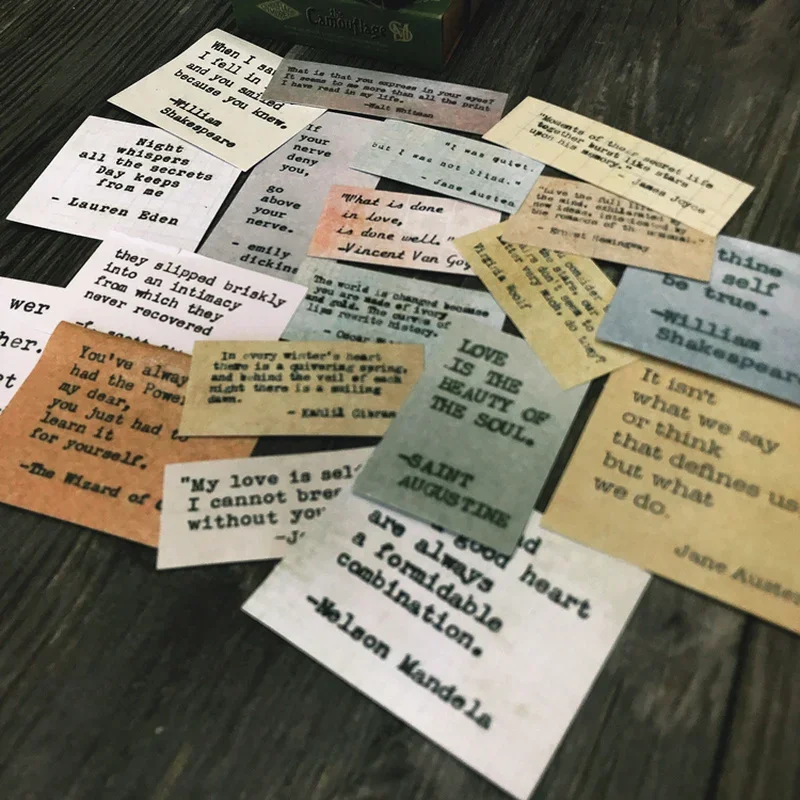 The
Camouflage
When I sa
I fell in
and you smiled
because you knew.
-William
Shakespeare
What is that you express in your eyes?
It seems to me more than all the print
I have read in my life.
-Walt Whitman
"Moments of their secret life
together burst like stars
upon his memory."
- James Joyce
Night
whispers
all the secrets
Day keeps
from me
- Lauren Eden
If
your
nerve
deny
you,
go
above
your
nerve.
- emily
dickins
"I was quiet,
but I was not blind."
- Jane Austen
"What is done
in love,
is done well."
-Vincent Van Gog
"Live the full life of
the mind, exhilarated by
new ideas, intoxicated by
the romance of the unusual."
- Ernest Hemingway
consider
the stars our
don't seem to
matter very much, do they?
Virginia Woolf
thine
self
be true.
-William
Shakespeare
they slipped briskly
into an intimacy
from which they
never recovered
The world is changed because
you are made of ivory
and gold. The curves of
lips rewrite history.
- Oscar
wer
her.
et
You've alway
had the Power
my dear,
you just had to
learn it
for yourself.
-The Wizard of
In every winter's heart
there is a quivering spring,
and behind the veil of each
night there is a smiling
dawn.
- Kahlil Gibran
LOVE
IS THE
BEAUTY OF
THE SOUL.
-SAINT
AUGUSTINE
It isn't
what we say
or think
that defines us
but what
we do.
Jane Austen
"My love is sel
I cannot brea
without you
-J
good heart
are always
a formidable
combination.
-Nelson Mandela